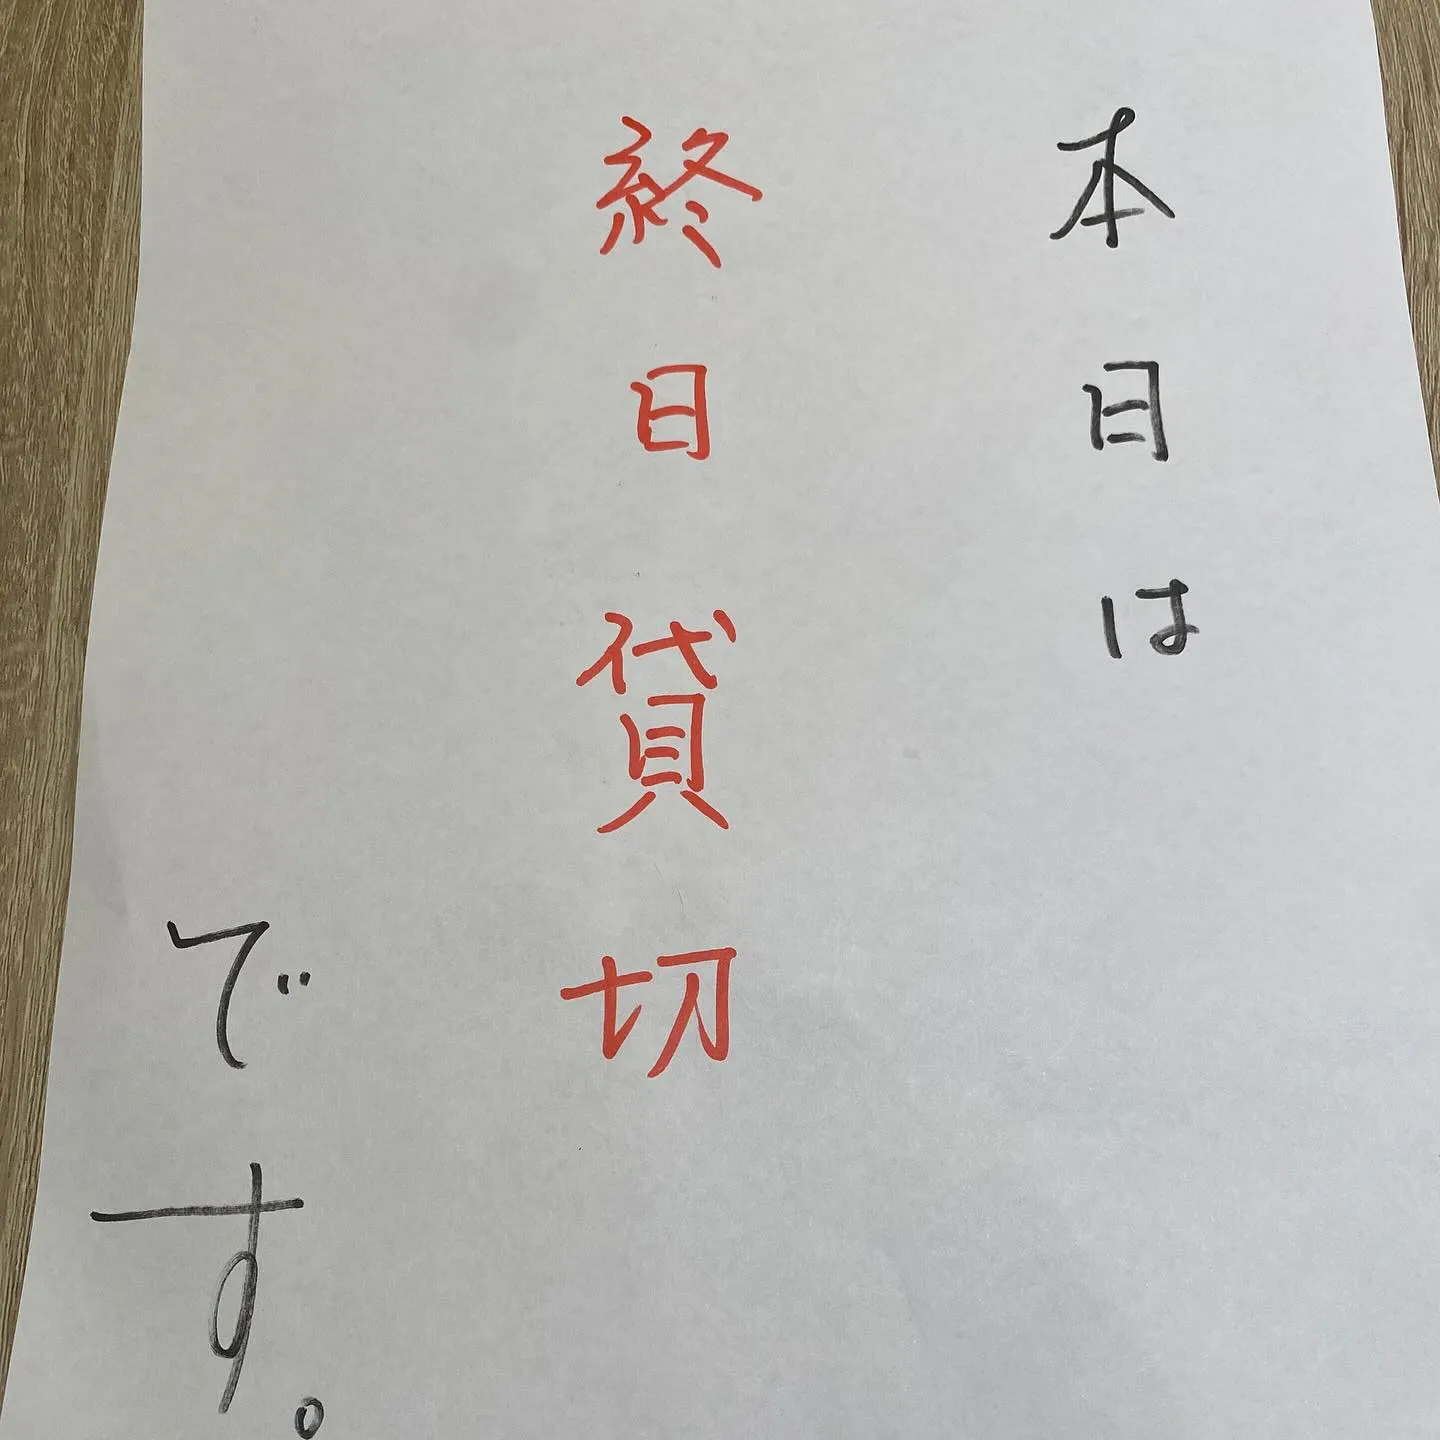 本日は
終日貸切
です。